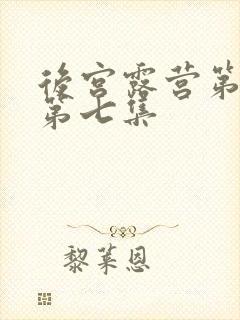 後宫露营第
第七集
黎莱恩